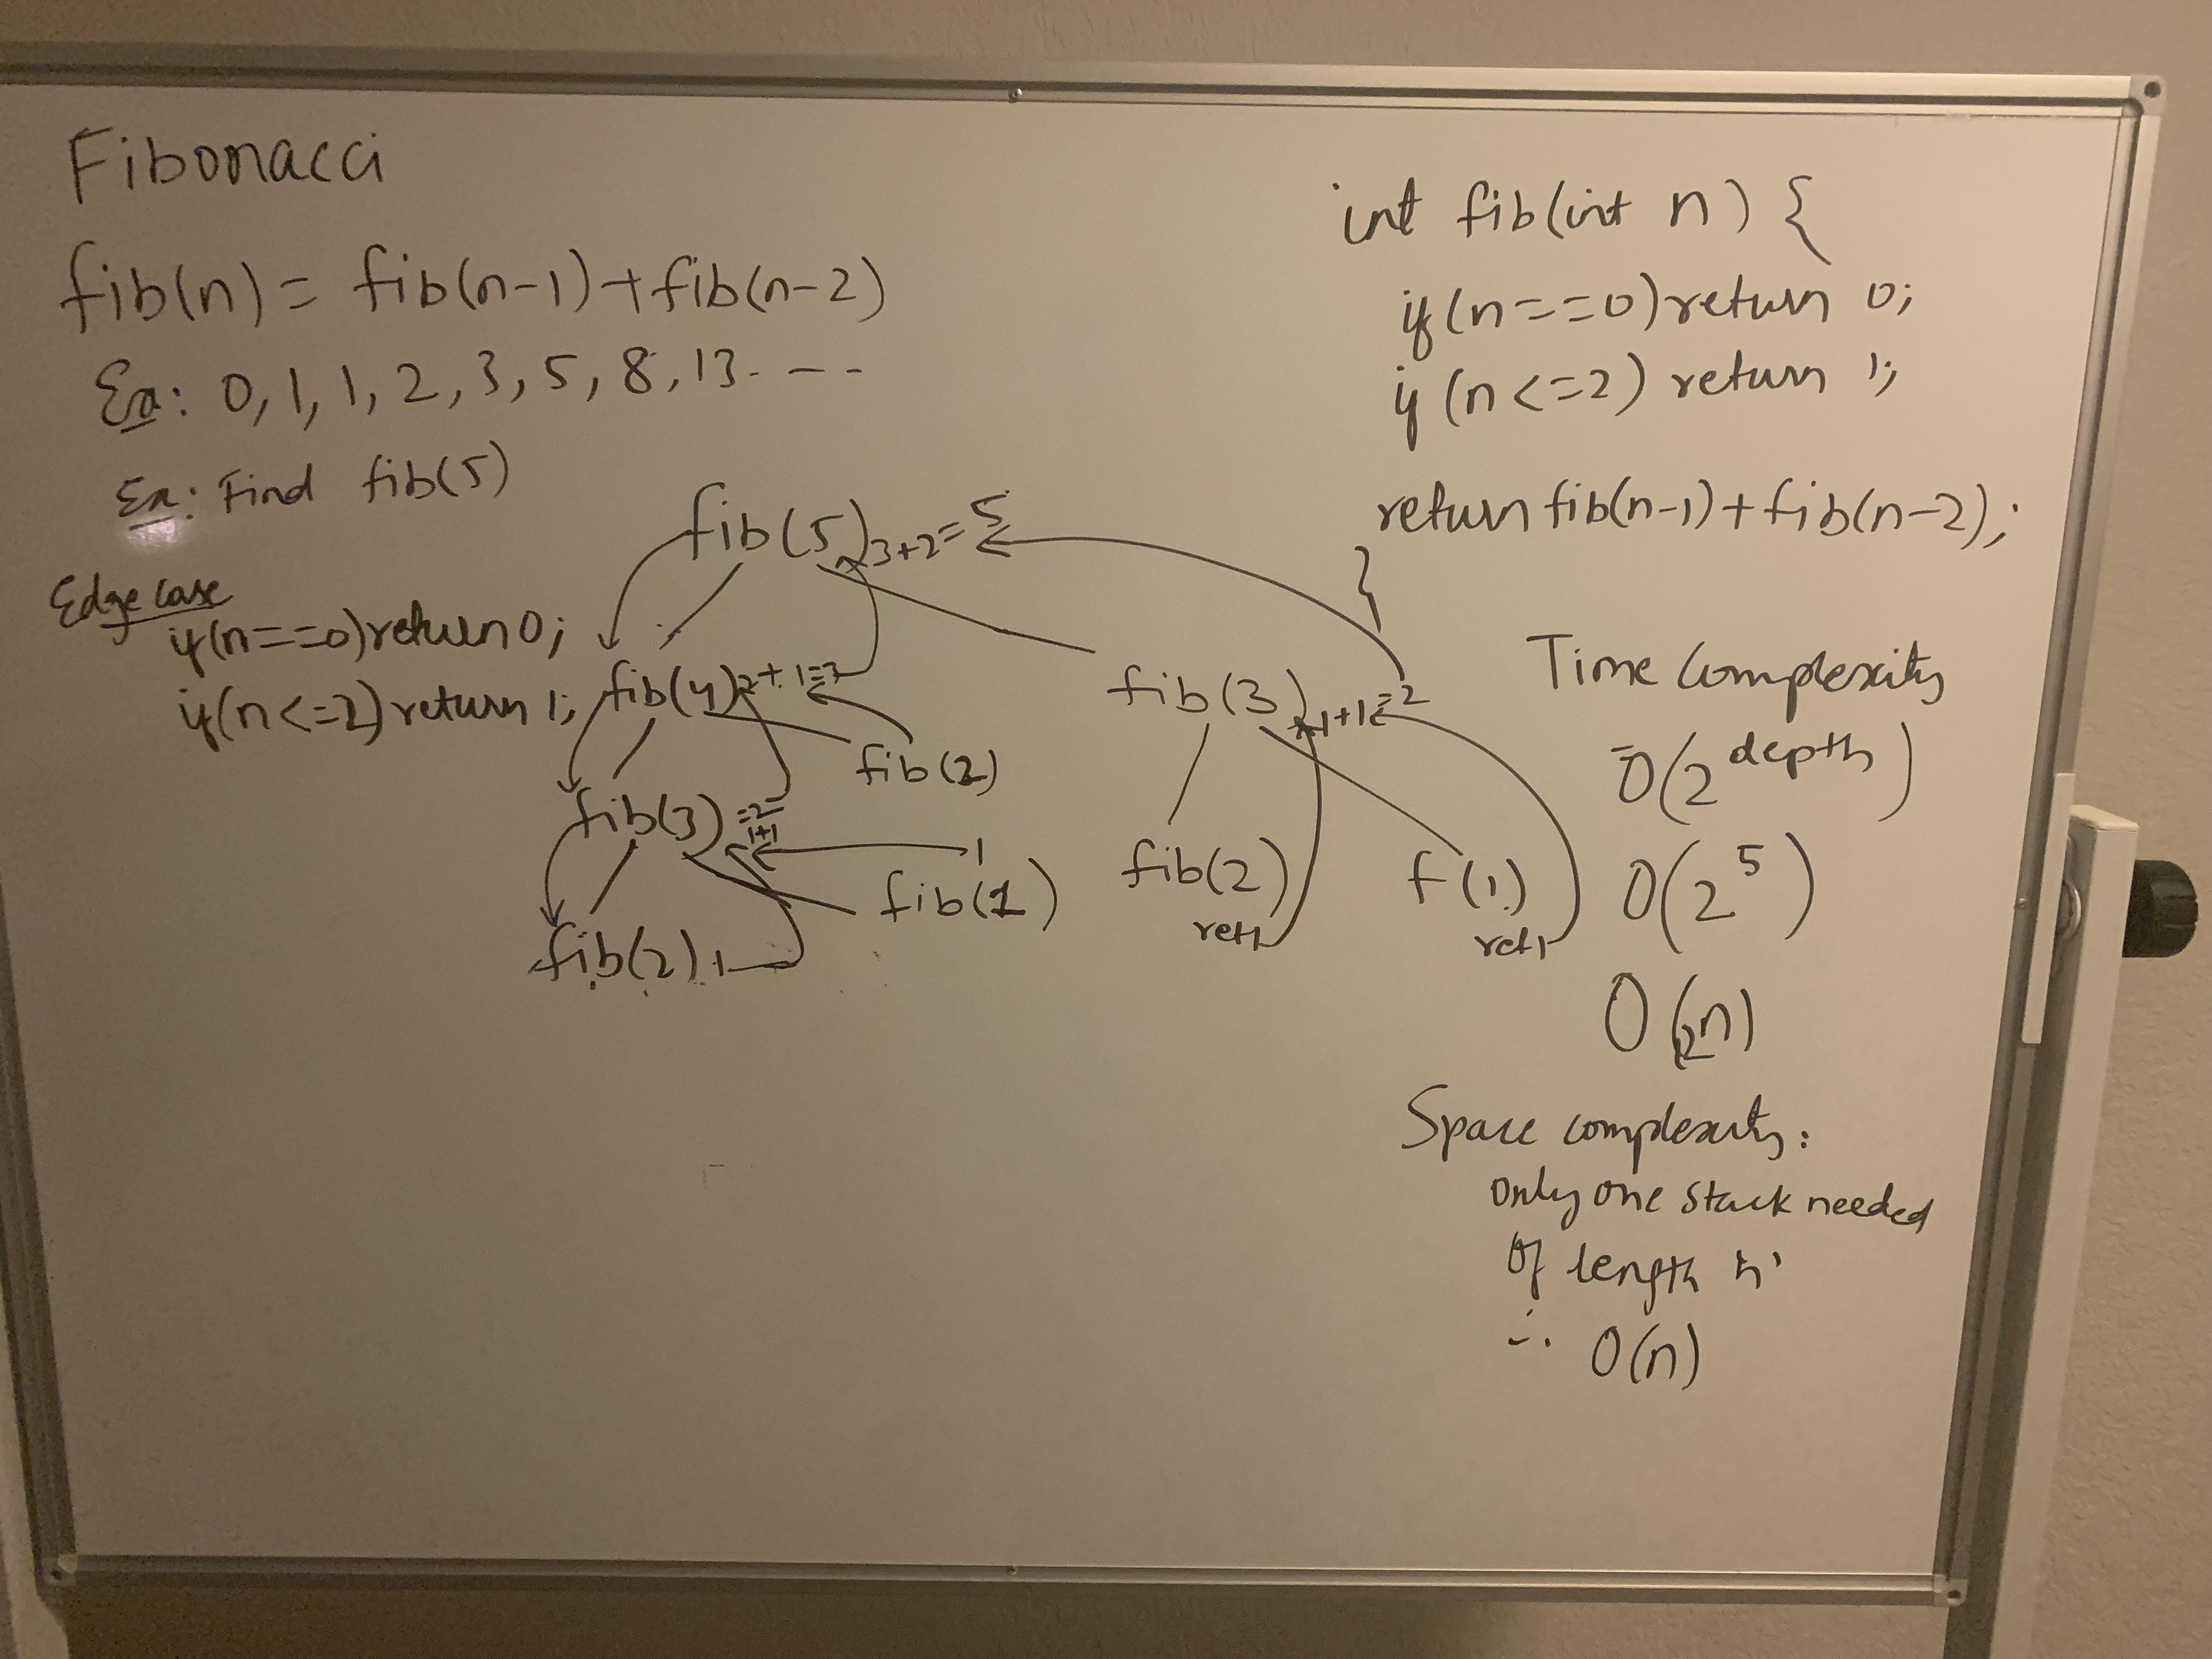 Fibonacci
fib(n) = fib(n-1)+fib(n-2)
Ex: 0, 1, 1, 2, 3, 5, 8, 13- - - -
Ex: Find fib(5)
Edge case
if(n==0)return 0;
if(n<=2)return 1;
fib(5) 3+2=5
fib(4) 2+1=3
fib(3) 1+1=2
fib(2)
fib(3) =2=
1+1
1
fib(1)
fib(2)
ret1
f(1)
ret1
fib(2) 1
int fib(int n) {
if(n==0)return 0;
if (n<=2) return 1;
return fib(n-1)+fib(n-2);
}
Time Complexity
O(2^depth)
O(2^5)
O(2n)
Space complexity:
only one stack needed
of length 'n'
∴ O(n)